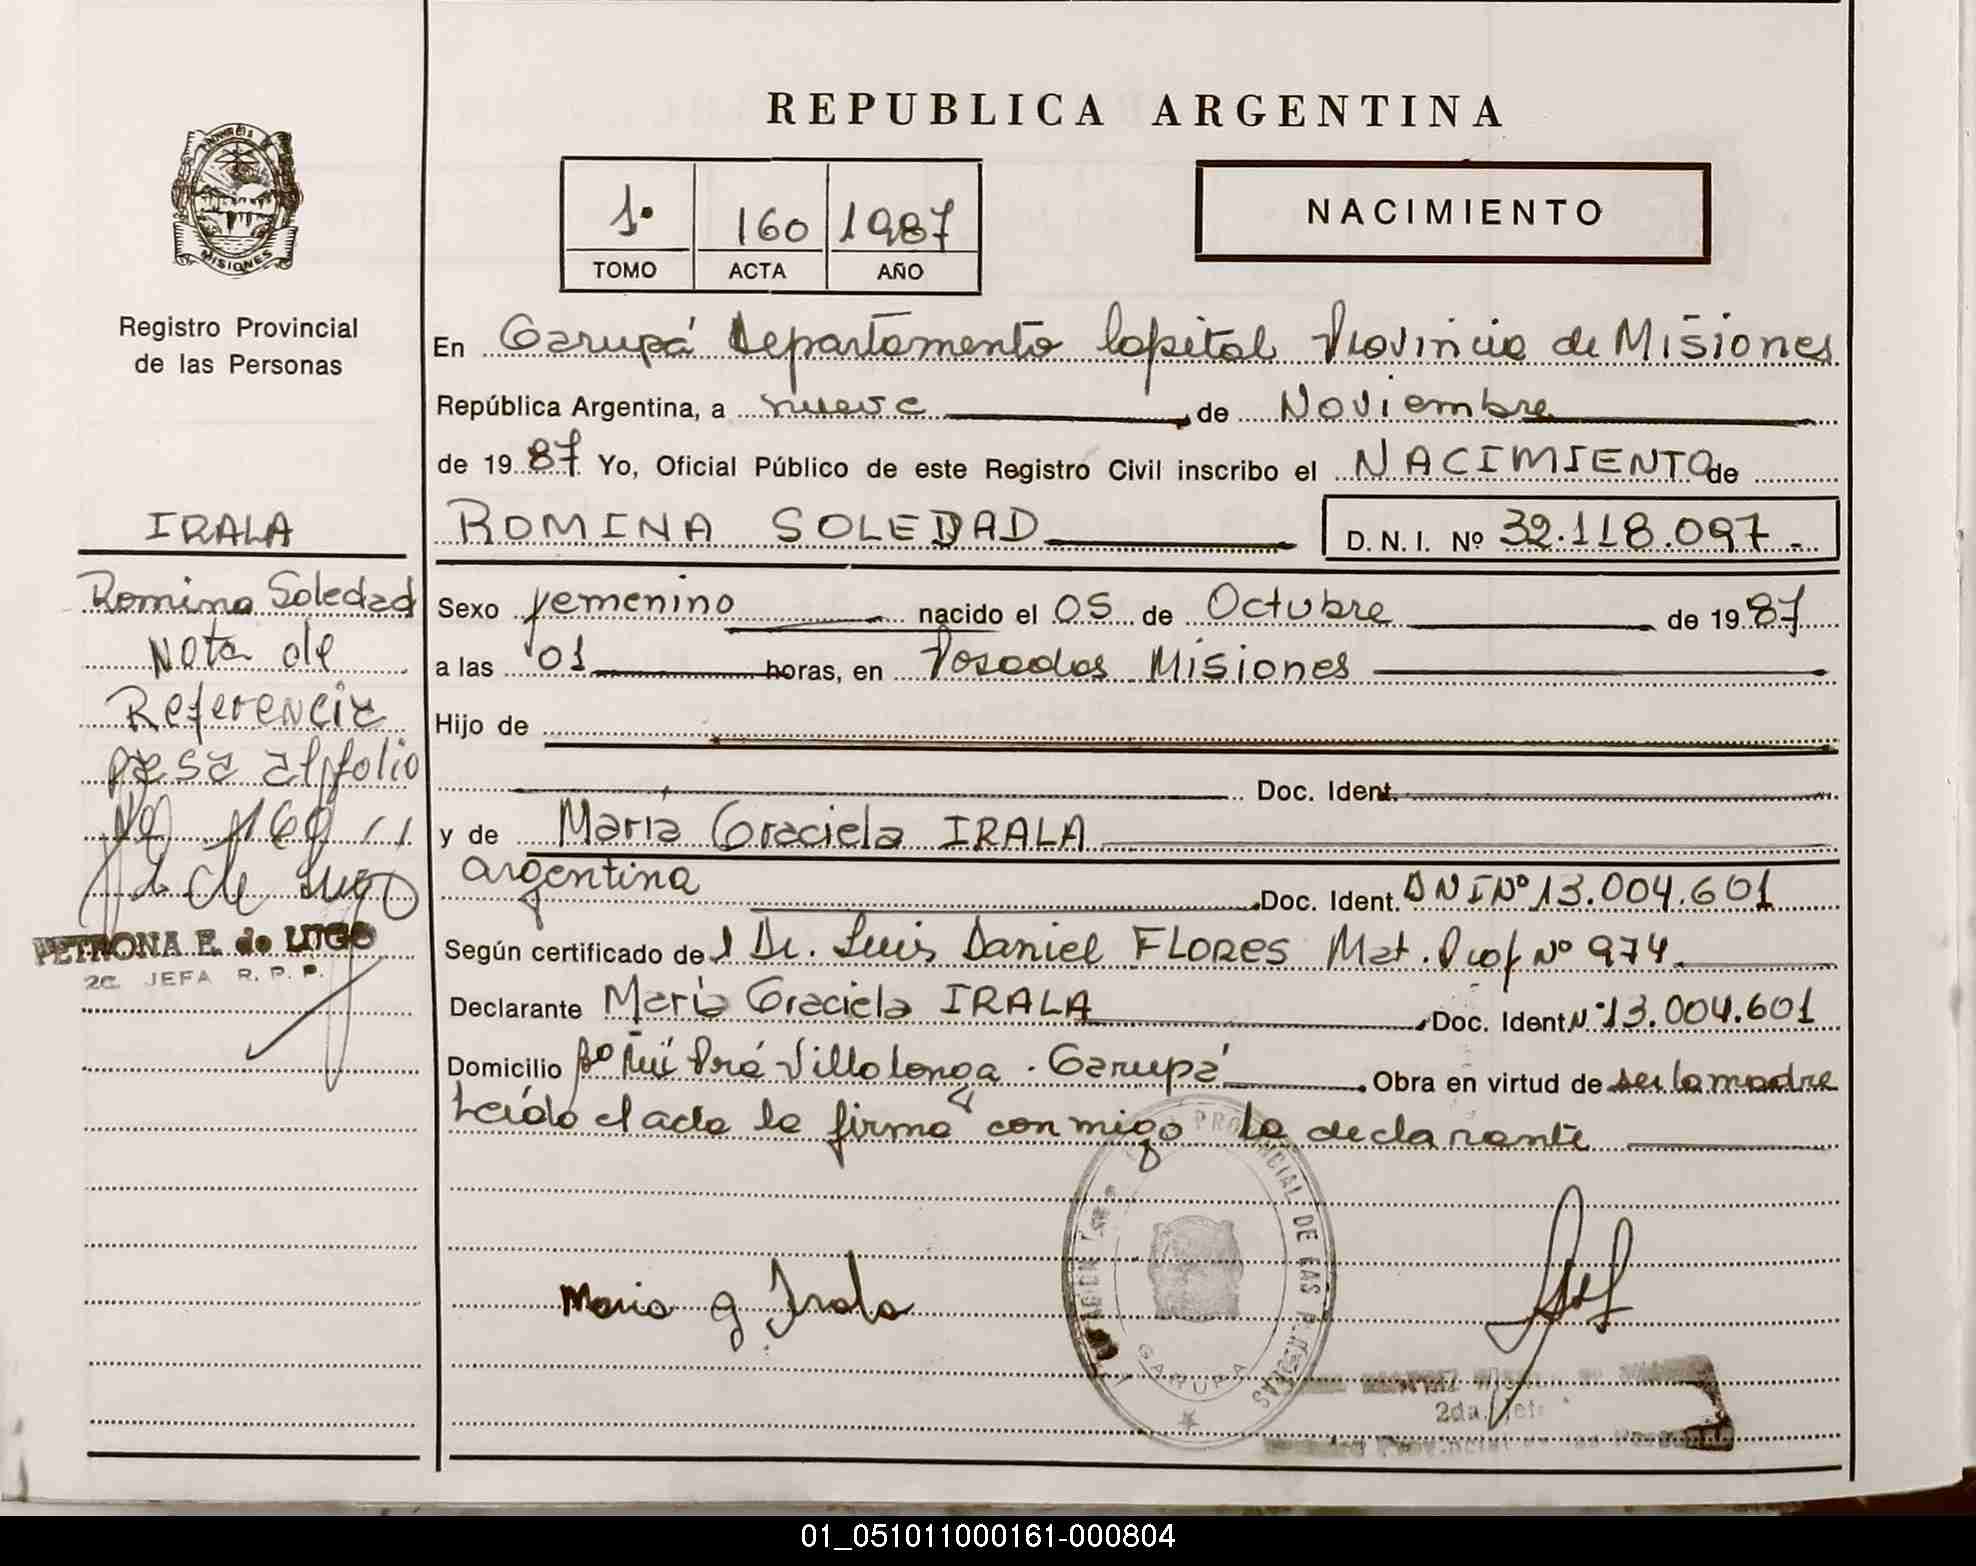 REPUBLICA ARGENTINA
MISIONES
1º 160 1987
TOMO ACTA AÑO
NACIMIENTO
Registro Provincial
de las Personas
En Garupá Departamento Capital Provincia de Misiones
República Argentina, a nueve de Noviembre
de 1987 Yo, Oficial Público de este Registro Civil inscribo el NACIMIENTO de
ROMINA SOLEDAD D.N.I. Nº 32.118.097
Sexo femenino nacido el 05 de Octubre de 1987
a las 01 horas, en Posadas Misiones
Hijo de
Doc. Ident.
y de María Graciela IRALA
argentina Doc. Ident. DNI Nº 13.004.601
Según certificado de l Dr. Luis Daniel FLORES Mat. Prof Nº 974
Declarante María Graciela IRALA Doc. Ident Nº 13.004.601
Domicilio Bº Villalonga . Garupá Obra en virtud de ser la madre
Leído el acta la firma conmigo la declarante
IRALA
Romina Soledad
Nota de
Referencia
pasa al folio
Nº 160
PETRONA E. de LUGO
2a. JEFA R. P. P.
Maria g Irala
PROVINCIAL DE LAS PERSONAS
GARUPA
2da. Jefe
Provincial de las Personas
01_051011000161-000804